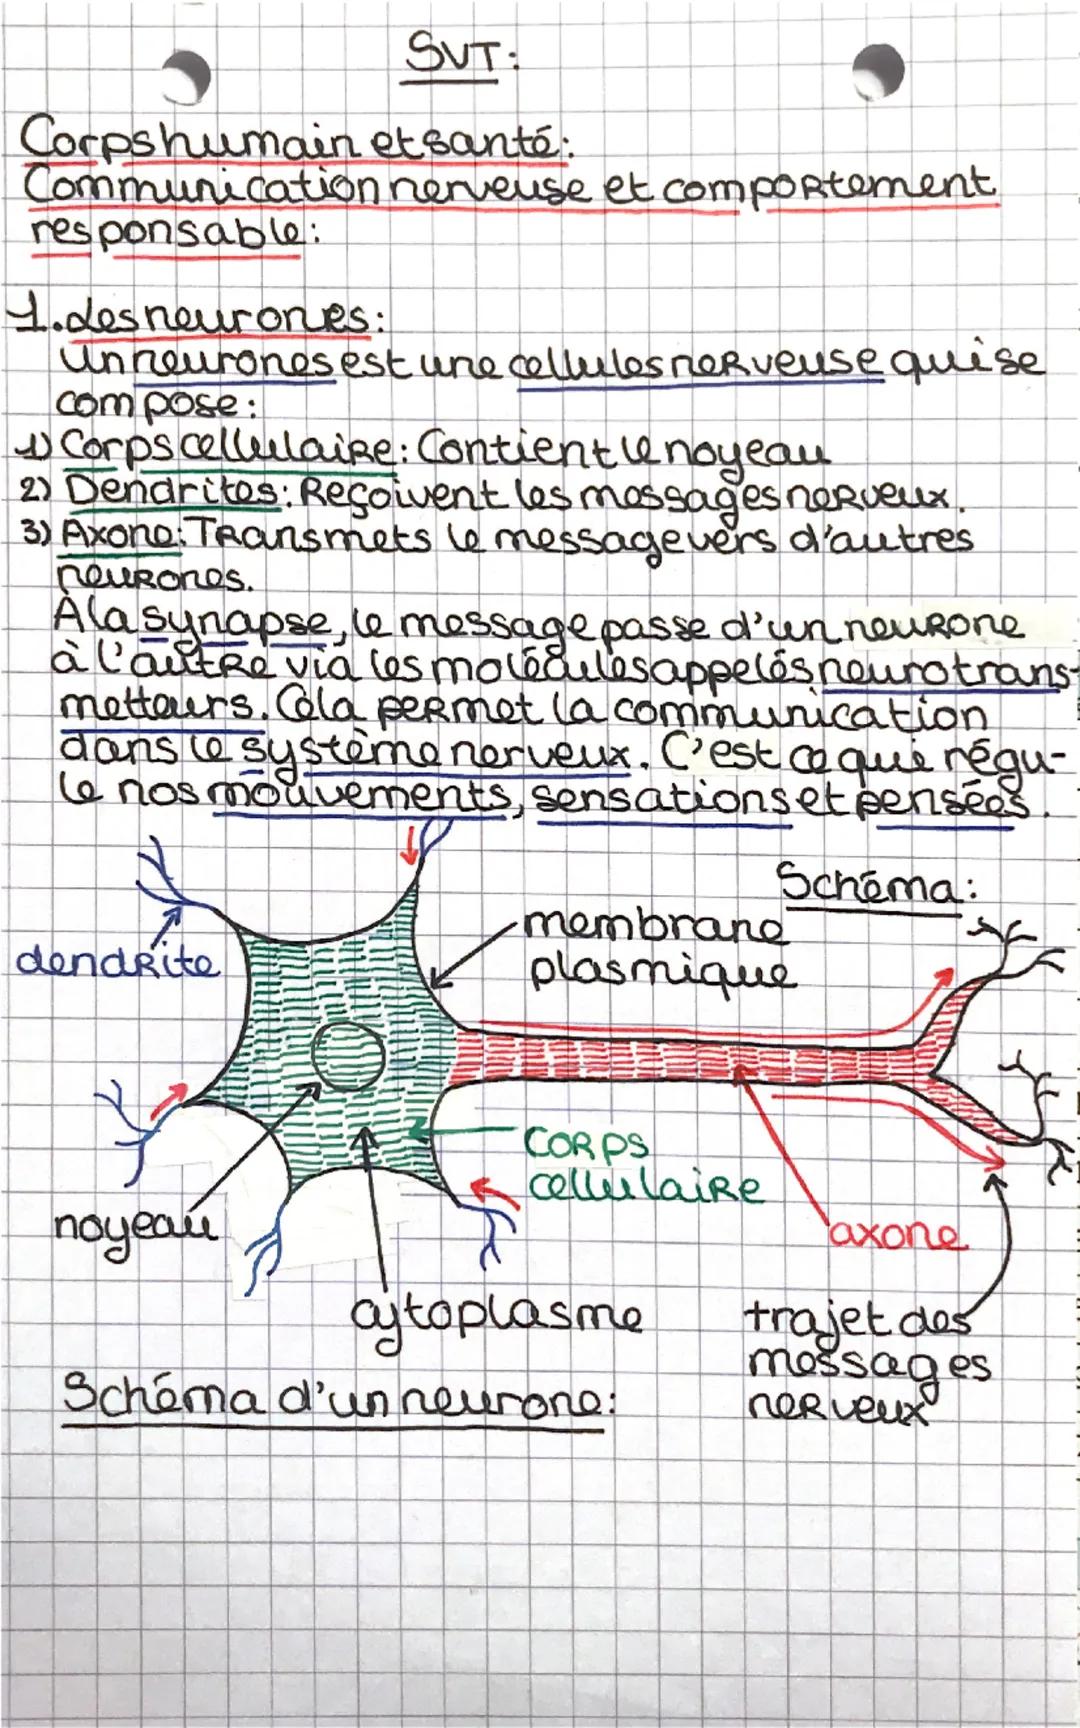 SVT:
Corps humain et santé:
Communication nerveuse et comportement
responsable:
1. Les neurones:
Un neurones est une cellules nerveuse qui se
compose:
1) Corps cellulaire: Contient le noyeau
2) Dendrites: Reçoivent les messages nerveux.
3) Axone: Transmets le message vers d'autres
neurones.
À la synapse, le message passe d'un neurone
à l'autre via les molécules appelés neurotrans-
metteurs. Cela permet la communication
dans le système nerveux. C'est ce qui régu-
le nos mouvements, sensations et pensées.
Schéma:
membrane
plasmique
dendrite
corps
cellulaire
noyeau
axone
cytoplasme
trajet des
messages
nerveux
Schéma d'un neurone: